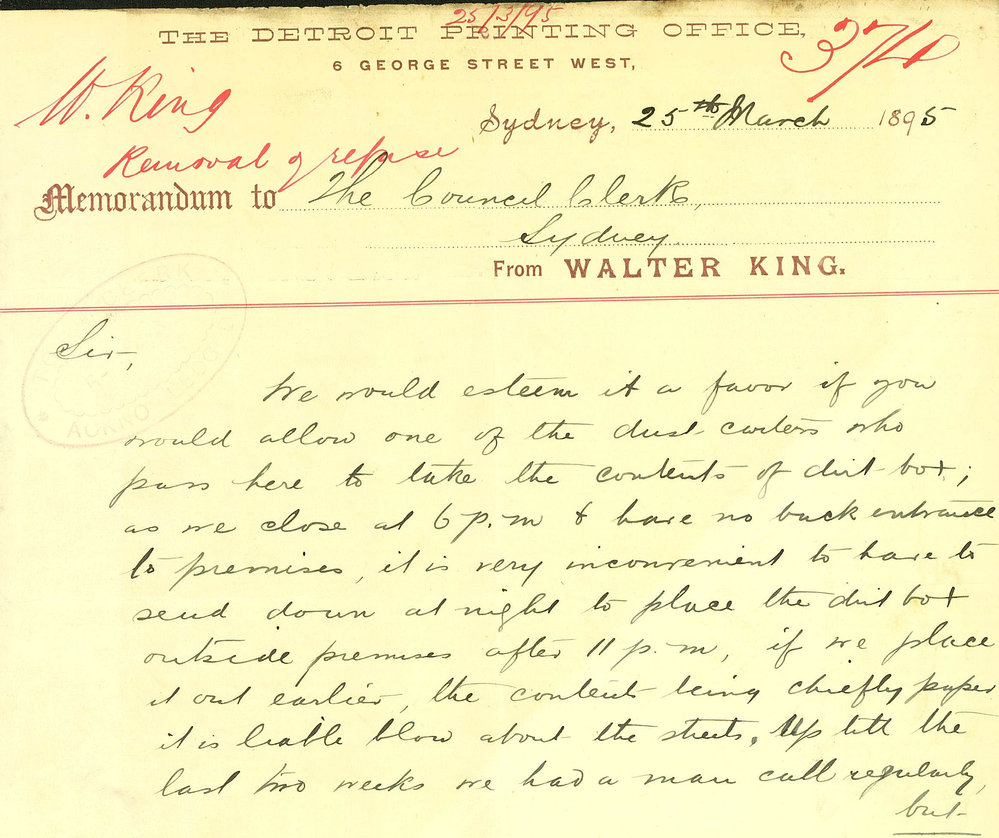 25/3/95
THE DETROIT PRINTING OFFICE,
6 GEORGE STREET WEST,
W. King
Sydney, 25th March 1895
Removal of refuse
Memorandum to The Council Clerk,
Sydney
From WALTER KING.
Sir,
We would esteem it a favor if you
would allow one of the dust carters who
pass here to take the contents of dirt box;
as we close at 6 p.m & have no back entrance
to premises, it is very inconvenient to have to
send down at night to place the dirt box
outside premises after 11 p.m, if we place
it out earlier, the contents being chiefly paper
it is liable blow about the streets. Up till the
last two weeks we had a man call regularly,
but